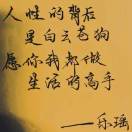 人性的背后
是白云苍狗
愿你我都能做
生活的高手
——乐瑶